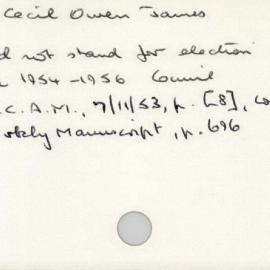 Cecil Owen James
d not stand for election
1954-1956 Council
.C.A.M., 7/11/53, p. [8], Co
Manuscript, p. 696